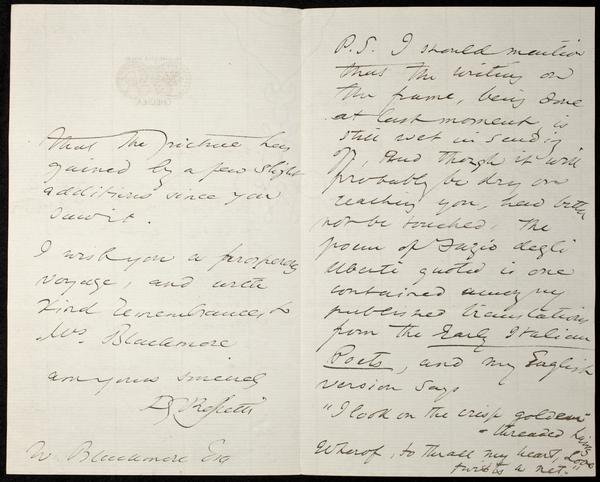 that the picture has
gained by a few slight
additions since you
saw it.
I wish you a prosperous
voyage, and with
kind remembrances to
Mrs. Blackmore
am yours sincerely
DG Rossetti
W Blackmore Esq
P.S. I should mention
that the writing on
the frame, being done
at last moment, is
still wet in sending
off, and though it will
probably be dry on
reaching you, had better
not be touched. The
poem of Fazio degli
Uberti quoted is one
contained among my
published translations
from the Early Italian
Poets, and my English
version says
"I look on the crisp golden-
threaded hair
Whereof, to thrall my heart, Love
twists a net."
CHELSEA